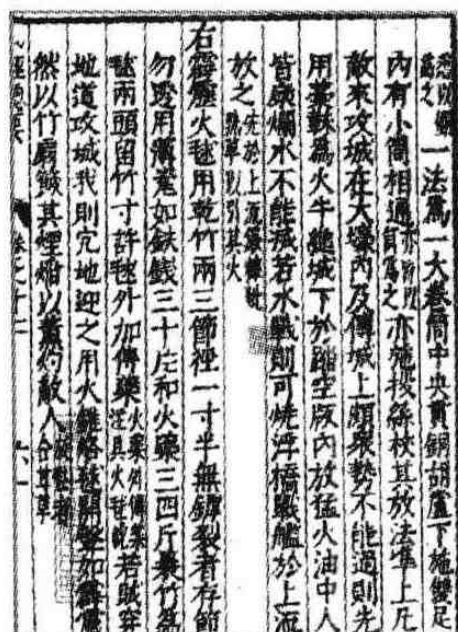 一法為一大卷筒中央貫銅胡盧下施雙足
內有小筒相通為之亦施絲杖其放法準上凡
敵來攻城在大壕內及傅城上頗眾勢不能過則先
用藁秸為火牛縋城下於踏空版內放猛火油中人
皆糜爛水不能滅若水戰則可燒浮橋戰艦於上流
放之先於上流簸糠秕熟草以引其火
右霹靂火毬用乾竹兩三節徑一寸半無罅裂者存節
勿透用薄瓷如鉄錢三十片和火藥三四斤裹竹為
毬兩頭留竹寸許毬外加傅藥火藥外傅藥注具火毬說若賊穿
地道攻城我則穴地迎之用火錐烙毬開聲如霹靂
然以竹扇簸其煙焰以薰灼敵人放毬者合甘草